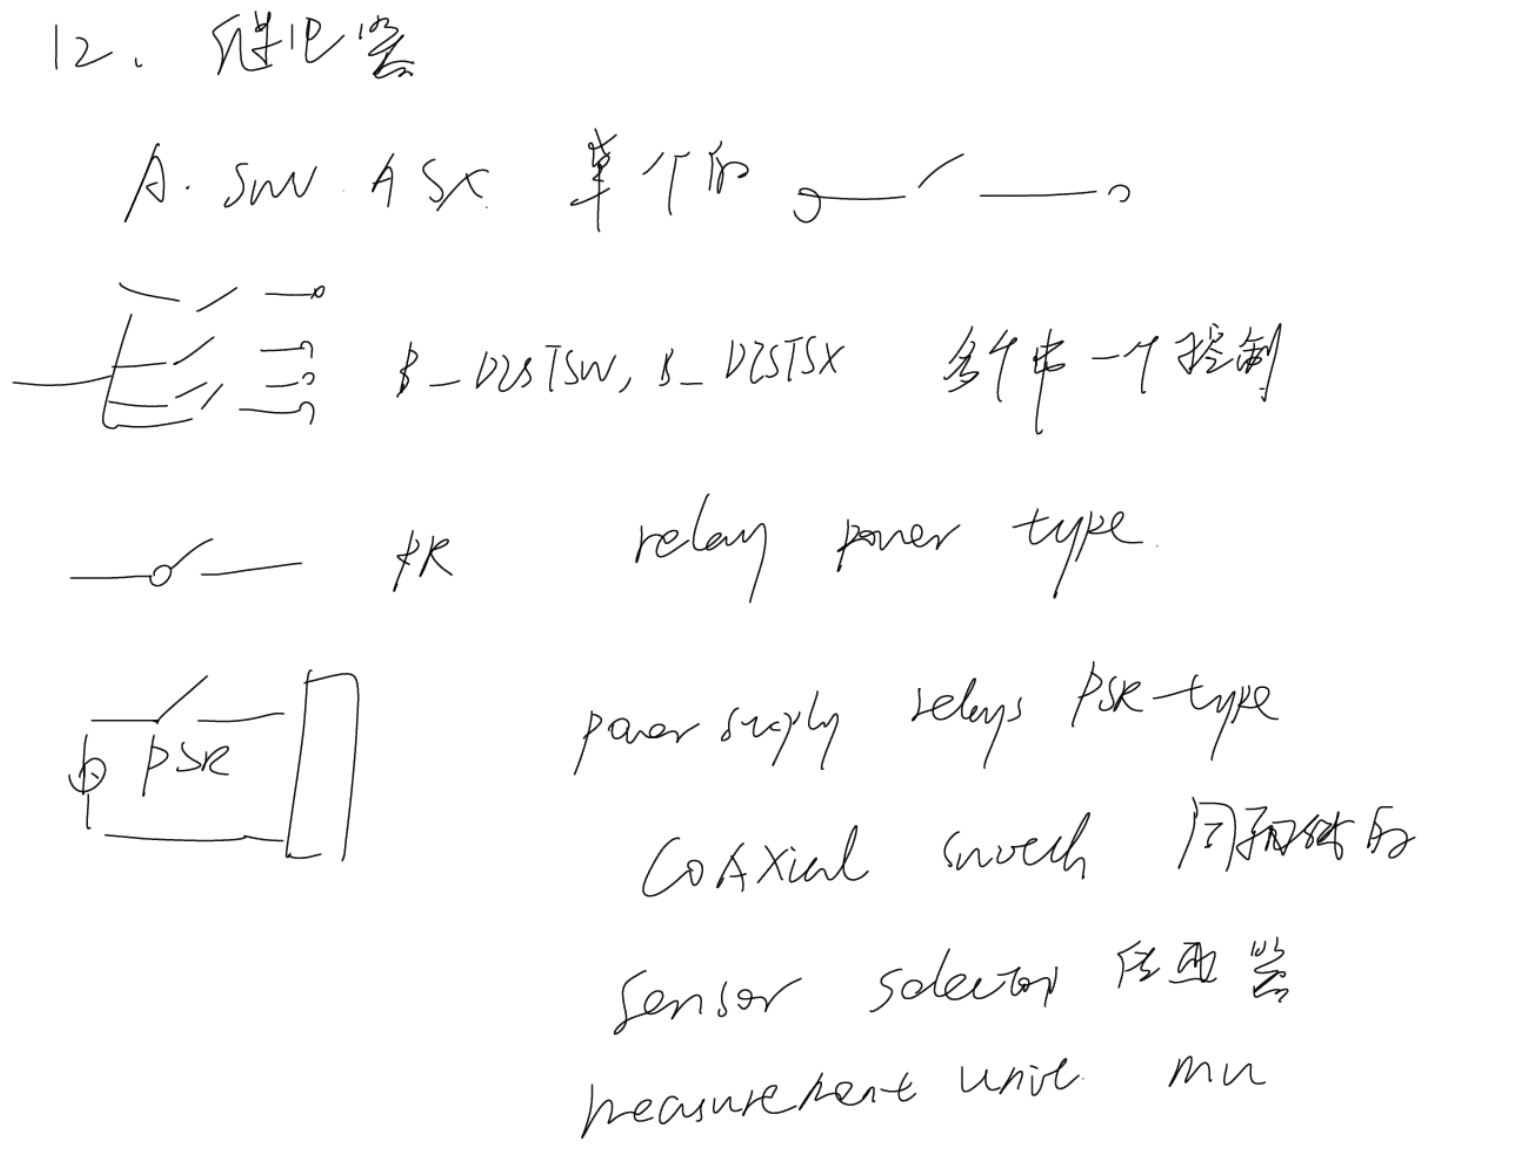 12. 继电器
A. SWV. ASX 单个的
B_DZSTSW, B_DZSTSX 多个串一个控制
PR relay power type.
power supply relays PSR-type
PSR
COAXial switch 同轴线的
Sensor selector 传
measurement unit. mu